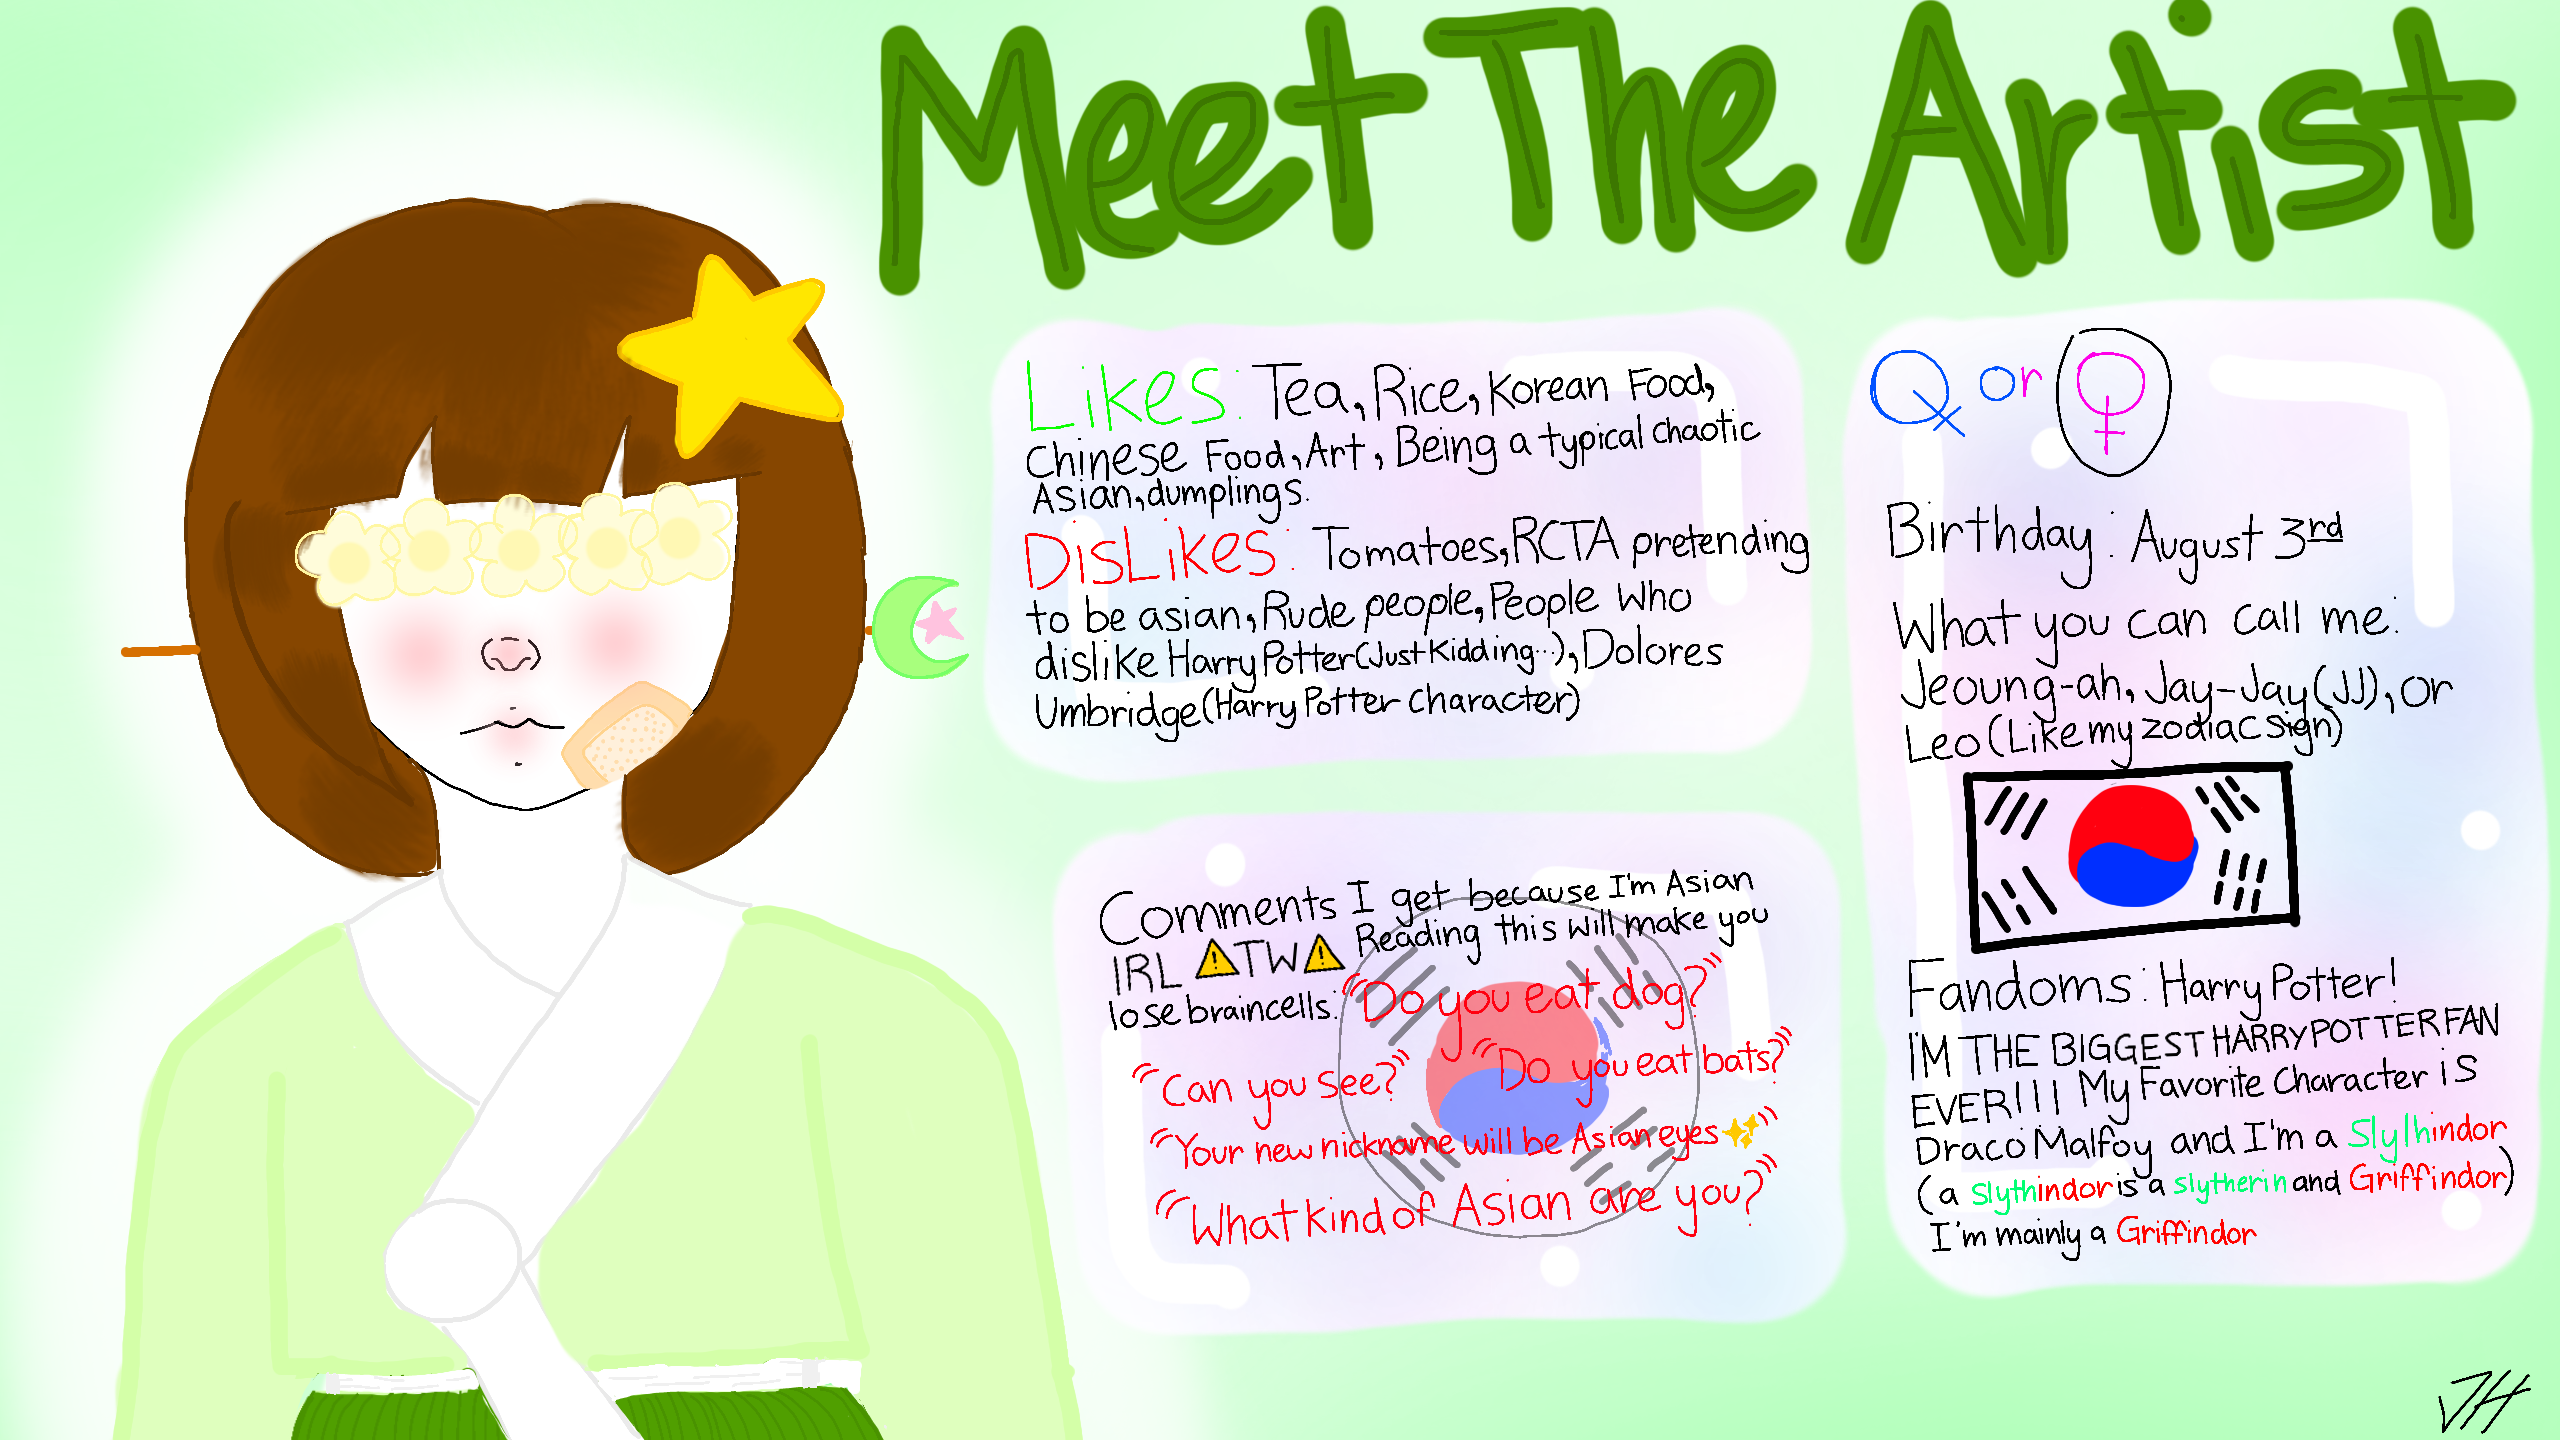 Meet The Artist
Likes: Tea, Rice, Korean Food,
Chinese Food, Art, Being a typical chaotic
Asian, dumplings.
DisLikes: Tomatoes, RCTA pretending
to be asian, Rude people, People who
dislike Harry Potter (Just Kidding..), Dolores
Umbridge (Harry Potter Character)
Comments I get because I'm Asian
IRL ⚠TW⚠ Reading this will make you
lose braincells: "Do you eat dog?"
"Can you see?" "Do you eat bats?"
"Your new nickname will be Asian eyes✨"
"What kind of Asian are you?"
or
Birthday: August 3rd
What you can call me:
Jeoung-ah, Jay-Jay (JJ), or
Leo (Like my zodiac sign)
Fandoms: Harry Potter!
I'M THE BIGGEST HARRY POTTER FAN
EVER!!! My Favorite Character is
Draco Malfoy and I'm a Slylhindor
(a Slythindor is a slytherin and Griffindor)
I'm mainly a Griffindor
JH